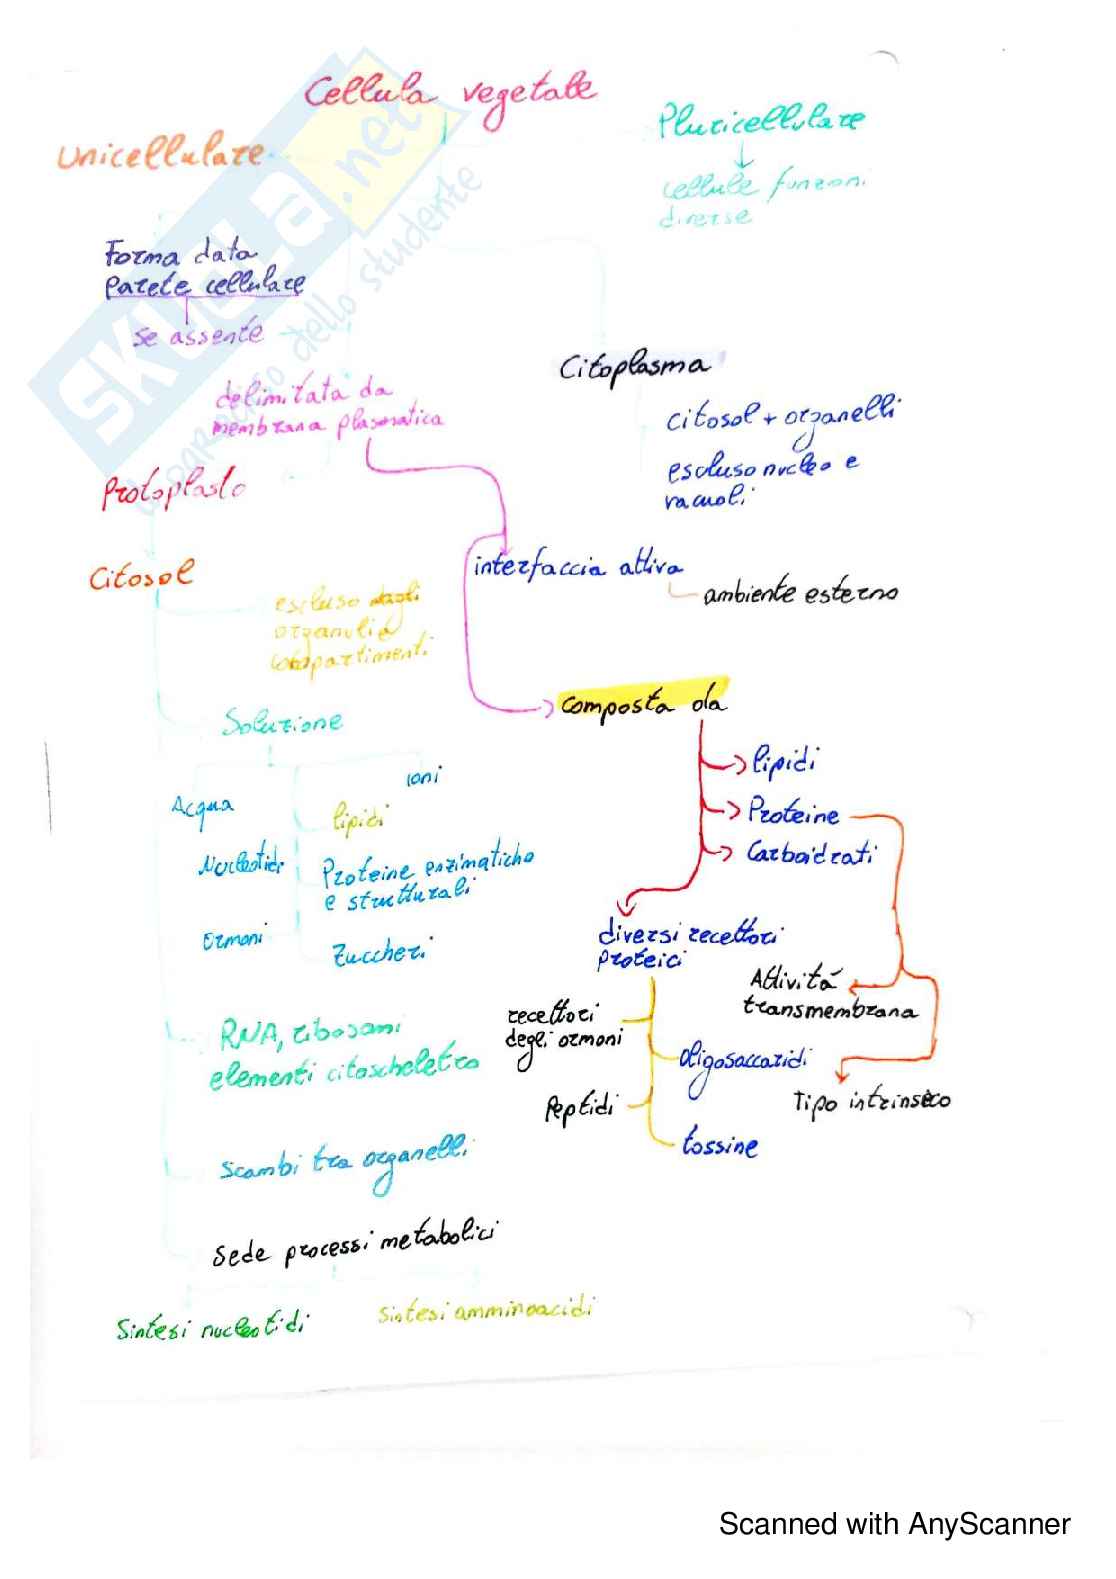 Cellula vegetale
Pluricellulare
Unicellulare
cellule funzioni
diverse
Forma data
parete cellulare
se assente
Citoplasma
delimitata da
membrana plasmatica
citosol + organelli
escluso nucleo e
vacuoli
Protoplasto
Citosol
interfaccia attiva
ambiente esterno
escluso dagli
organuli e
compartimenti
composta da
Soluzione
lipidi
ioni
Acqua
lipidi
Proteine
Carboidrati
Nucleotidi
Proteine enzimatiche
e strutturali
Ormoni
Zuccheri
diversi recettori
proteici
Attività
transmembrana
recettori
degli ormoni
RNA, ribosomi
elementi citoscheletro
oligosaccaridi
Peptidi
Tipo intrinseco
tossine
Scambi tra organelli
Sede processi metabolici
Sintesi nucleotidi
sintesi amminoacidi
SKUOLA.net
il paradiso dello studente
Scanned with AnyScanner